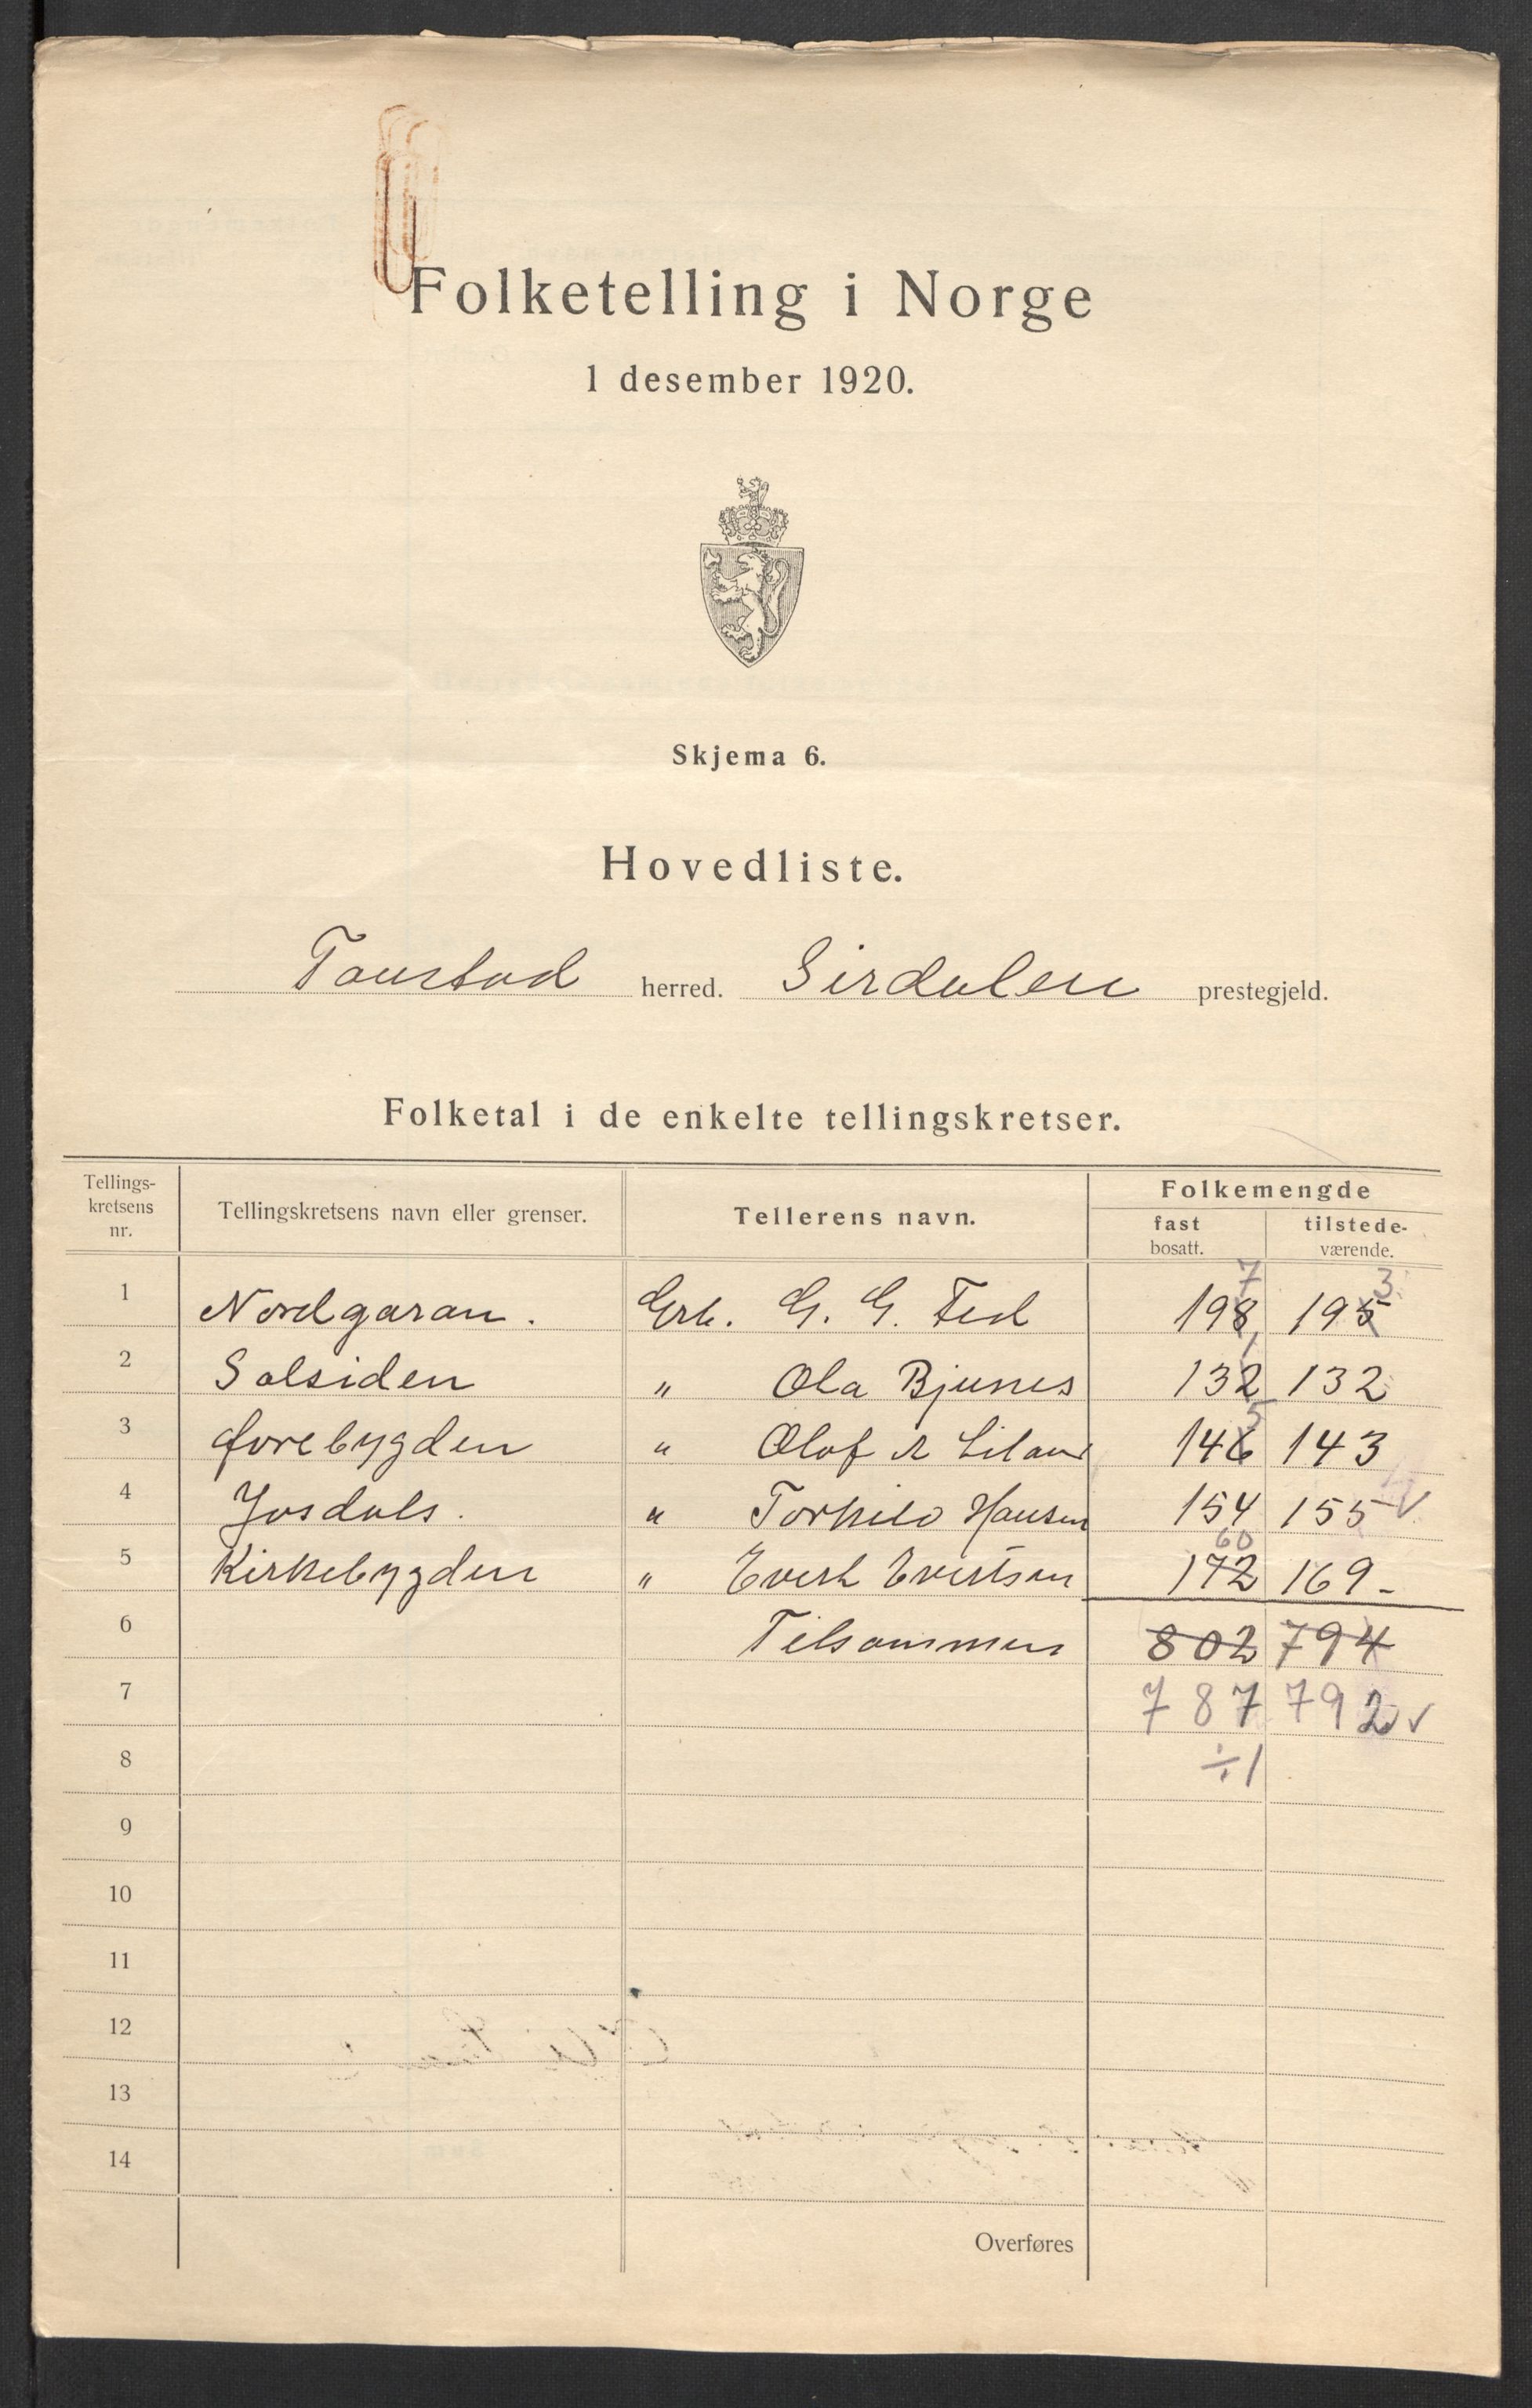 Folketelling i Norge
1 desember 1920.
Skjema 6.
Hovedliste.
Tonstad herred. Sirdalen prestegjeld.
Folketal i de enkelte tellingskretser.
Tellings-
kretsens
nr.
Tellingskretsens navn eller grenser.
Tellerens navn.
Folkemengde
fast
bosatt.
tilstede-
værende.
7 3
1 Nordgaran. G. G. Fed 198 195
1
2 Solsiden " Ola Bjunes 132 132
5
3 Øvrebygden " Olaf Liland 146 143
4 Josdals. " Torkild Hansen 154 155 √
60
5 Kirkebygden " Evert Evertsen 172 169-
6 Tilsammen 802 794
7 787 792 √
8 ÷1
9
10
11
12
13
14
Overføres